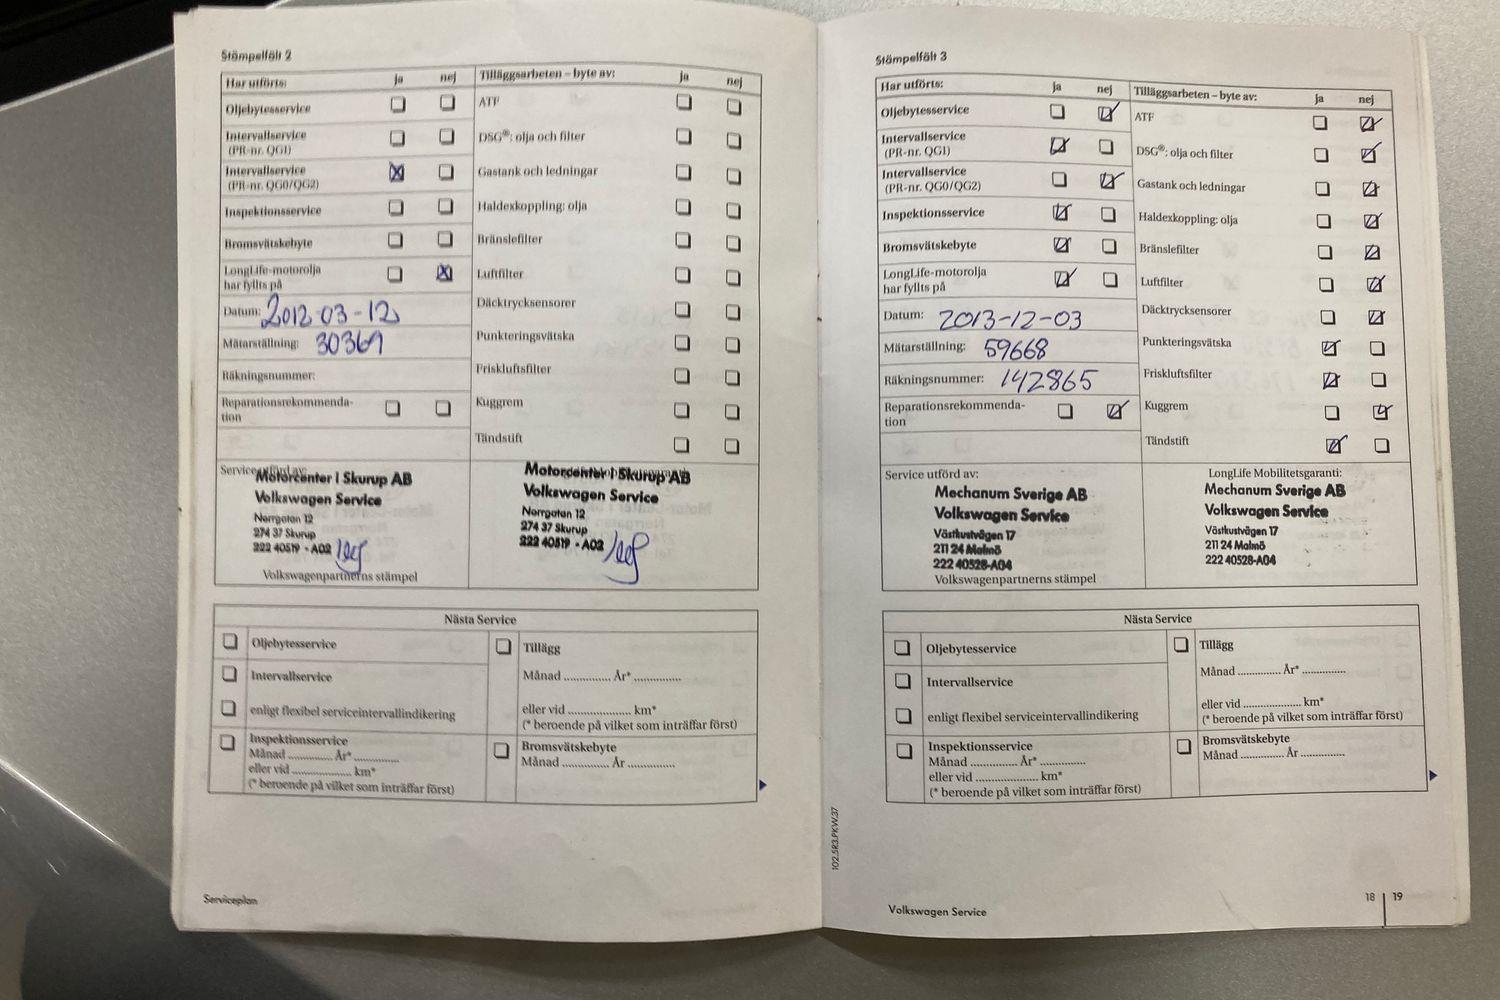 Stämpelfält 2
Har utförts: ja nej
Oljebytesservice
Intervallservice
(PR-nr. QG1)
Intervallservice
(PR-nr. QG0/QG2)
Inspektionsservice
Bromsvätskebyte
LongLife-motorolja
har fyllts på
Datum: 2012-03-12
Mätarställning: 30369
Räkningsnummer:
Reparationsrekommenda-
tion
Tilläggsarbeten – byte av: ja nej
ATF
DSG®: olja och filter
Gastank och ledningar
Haldexkoppling: olja
Bränslefilter
Luftfilter
Däcktrycksensorer
Punkteringsvätska
Friskluftsfilter
Kuggrem
Tändstift
Service utförd av:
Motorcenter i Skurup AB
Volkswagen Service
Norrgatan 12
274 37 Skurup
222 40519 - A02
Volkswagenpartnerns stämpel
Motorcenter i Skurup AB
Volkswagen Service
Norrgatan 12
274 37 Skurup
222 40519 - A02
Nästa Service
Oljebytesservice
Intervallservice
enligt flexibel serviceintervallindikering
Inspektionsservice
Månad ............ År* ............
eller vid .................. km*
(* beroende på vilket som inträffar först)
Tillägg
Månad ............ År* ............
eller vid .................. km*
(* beroende på vilket som inträffar först)
Bromsvätskebyte
Månad ............ År ............
Serviceplan
Stämpelfält 3
Har utförts: ja nej
Oljebytesservice
Intervallservice
(PR-nr. QG1)
Intervallservice
(PR-nr. QG0/QG2)
Inspektionsservice
Bromsvätskebyte
LongLife-motorolja
har fyllts på
Datum: 2013-12-03
Mätarställning: 59668
Räkningsnummer: 142865
Reparationsrekommenda-
tion
Tilläggsarbeten – byte av: ja nej
ATF
DSG®: olja och filter
Gastank och ledningar
Haldexkoppling: olja
Bränslefilter
Luftfilter
Däcktrycksensorer
Punkteringsvätska
Friskluftsfilter
Kuggrem
Tändstift
Service utförd av:
Mechanum Sverige AB
Volkswagen Service
Västkustvägen 17
211 24 Malmö
222 40528-A04
Volkswagenpartnerns stämpel
LongLife Mobilitetsgaranti:
Mechanum Sverige AB
Volkswagen Service
Västkustvägen 17
211 24 Malmö
222 40528-A04
Nästa Service
Oljebytesservice
Intervallservice
enligt flexibel serviceintervallindikering
Inspektionsservice
Månad ............ År* ............
eller vid .................. km*
(* beroende på vilket som inträffar först)
Tillägg
Månad ............ År* ............
eller vid .................. km*
(* beroende på vilket som inträffar först)
Bromsvätskebyte
Månad ............ År ............
102.5R3.PKW.37
Volkswagen Service
18 | 19